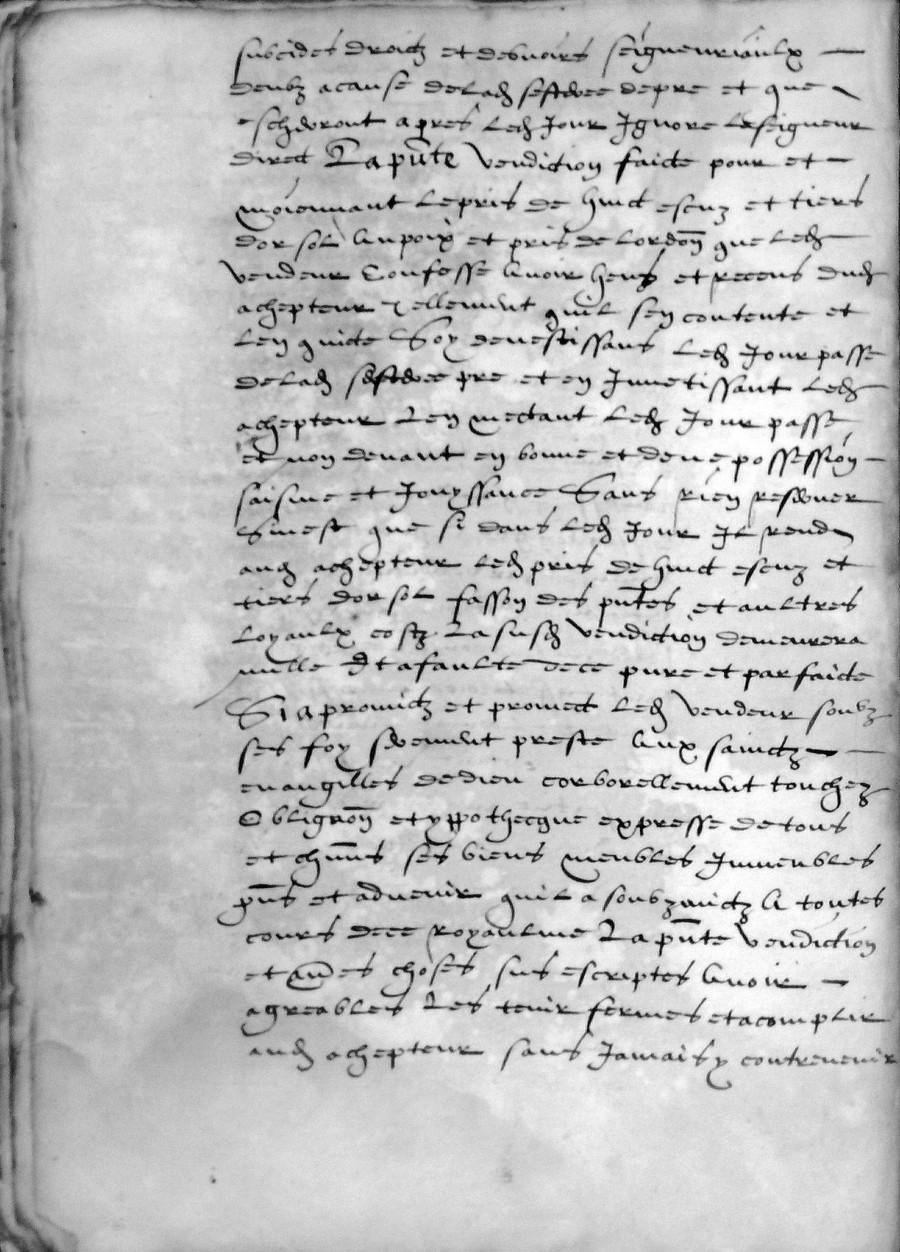 subcides droictz et debvoirs seigneuriaulx
deubz a cause de lad sesteree de pre et que
escherront apres led Jour Ignore le seigneur
direct La pnte vendiction faicte pour et
moiennant le pris de huict escuz et tiers
dor sol Au poix et pris de lordon que led
vendeur Confesse Avoir heus et receus dud
achepteur tellement quil sen contente et
len quicte Soy devestissans led Jour passe
de lad sesteree pre et en Investissant led
achepteur Len mectant led Jour passe
et non devant en bonne et deue possession
saisine et Jouyssance Sans rien reserver
Sinest que si dans led Jour Il rend
aud achepteur led pris de huict escuz et
tiers dor sol fasson des pntes et aultres
loyaulx costz La susd vendiction demeurera
nulle Et a faulte de ce pure et parfaicte
Si a promictz et promect led vendeur soubz
ses foy serement preste Aux sainctz
evangilles de dieu corborellement touchez
Obligaon et yppothecque expresse de tous
et chuns ses biens meubles Immeubles
pns et advenir quil a soubzmictz A toutes
cours de ce royaulme La pnte vendiction
et aues choses sus escriptes Avoir
agreables Les tenir fermes et acomplir
aud achepteur sans Jamais y contrevenir